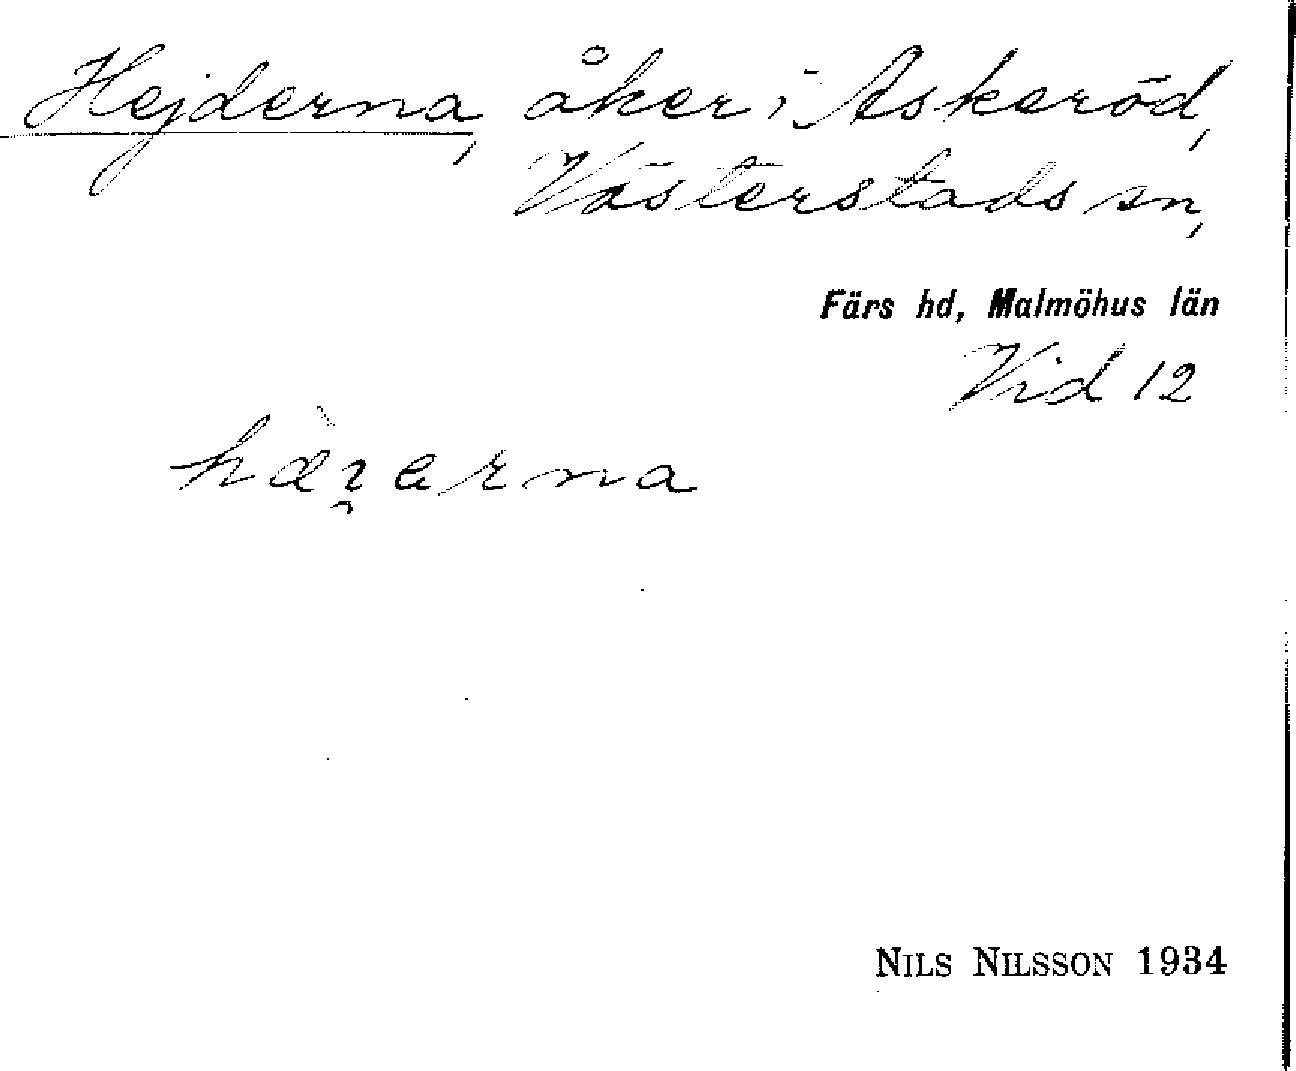 Hejderna, åker i Askeröd,
Västerstads sn,
Färs hd, Malmöhus län
Vid 12
NILS NILSSON 1934